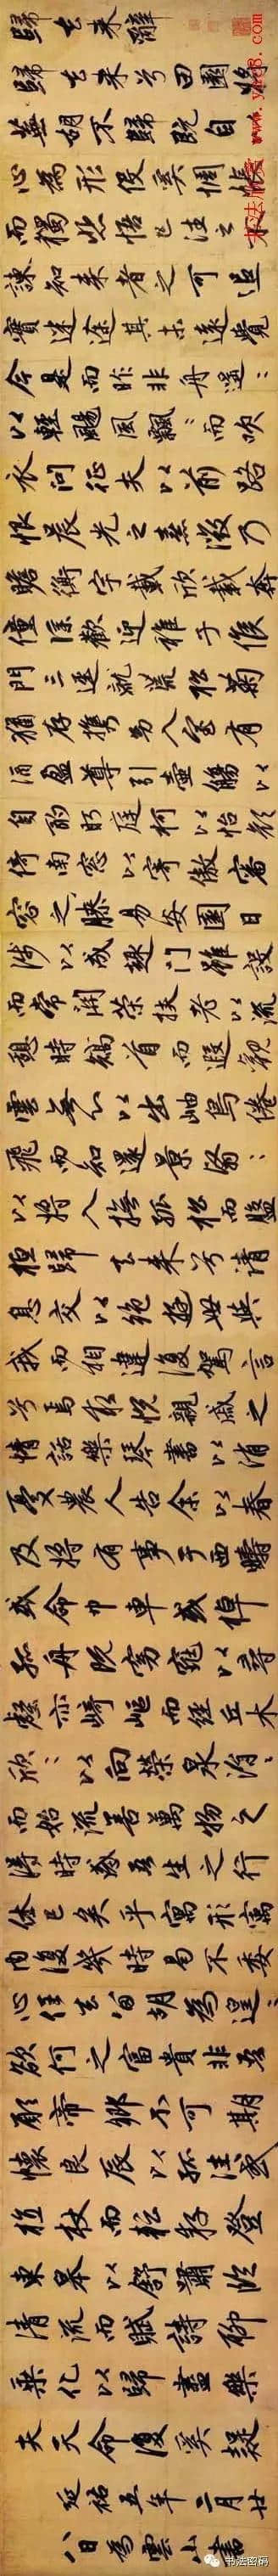 歸去来辭
歸去来兮田園將
蕪胡不歸既自以
心為形役奚惆悵
而獨悲悟已往之不
諫知来者之可追
實迷途其未遠覺
今是而昨非舟遥〻
以輕颺風飄〻而吹
衣問征夫以前路
恨晨光之熹微乃
瞻衡宇載欣載奔
僮僕歡迎稚子候
門三逕就荒松菊
猶存携幼入室有
酒盈尊引壺觴以
自酌眄庭柯以怡顔
倚南窓以寄傲審
容之膝易安園日
涉以成趣門雖設
而常關策扶老以流
憩時矯首而遐觀
雲無心以出岫鳥倦
飛而知還景翳〻
以將入撫孤松而盤
桓歸去来兮請
息交以絶遊世與
我而相違復駕言
兮焉求悦親戚之
情話樂琴書以消
憂農人告余以春
及將有事于西疇
或命巾車或棹
孤舟既窈窕以尋
壑亦崎嶇而經丘木
欣〻以向榮泉涓〻
而始流善萬物之
得時感吾生之行
休已矣乎寓形宇
内復幾時曷不委
心任去留胡為遑〻
欲何之富貴非吾
願帝鄉不可期
懷良辰以孤往或
植杖而耘耔登
東皋以舒嘯臨
清流而賦詩聊
乘化以歸盡樂
夫天命復奚疑
延祐五年二月廿
八日為雲山書
书法密码